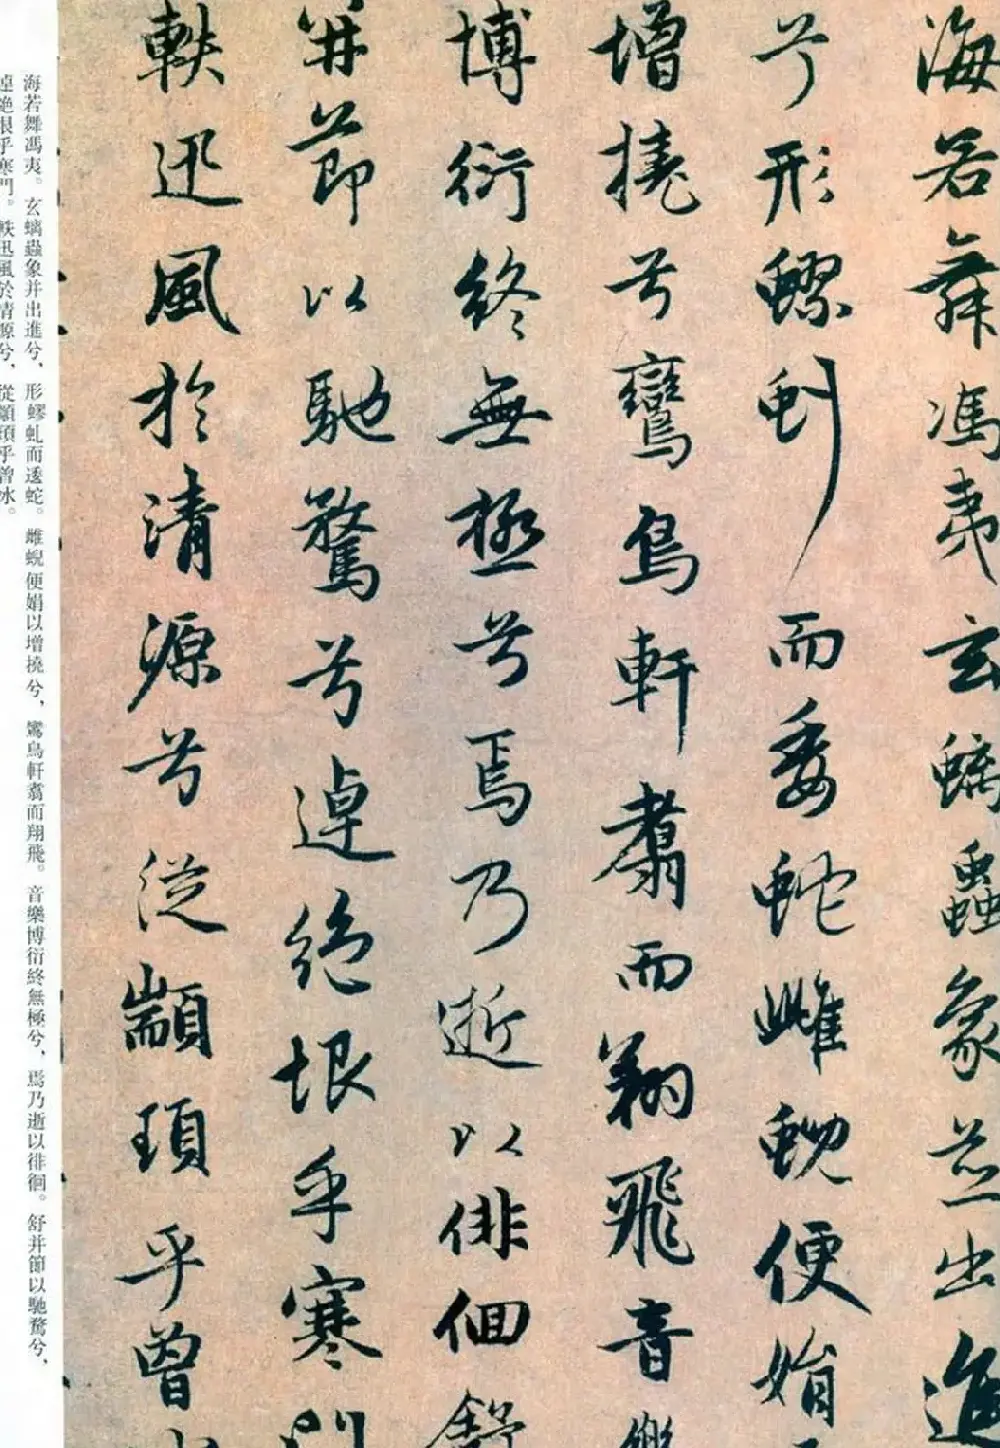 海若舞馮夷玄螭蟲象並出進
兮形蟉虯而委蛇雌蜺便娟
增撓兮鸞鳥軒翥而翔飛音樂
博衍終無極兮焉乃逝以徘徊舒
并節以馳騖兮逴絕垠乎寒
軼迅風於清源兮從顓頊乎曾
海若舞馮夷。玄螭蟲象并出進兮、形蟉虬而逶蛇。雌蜺便娟以增撓兮、鸞鳥軒翥而翔飛。音樂博衍終無極兮、焉乃逝以徘徊。舒并節以馳騖兮、
逴絕垠乎寒門。軼迅風於清源兮、從顓頊乎曾冰。